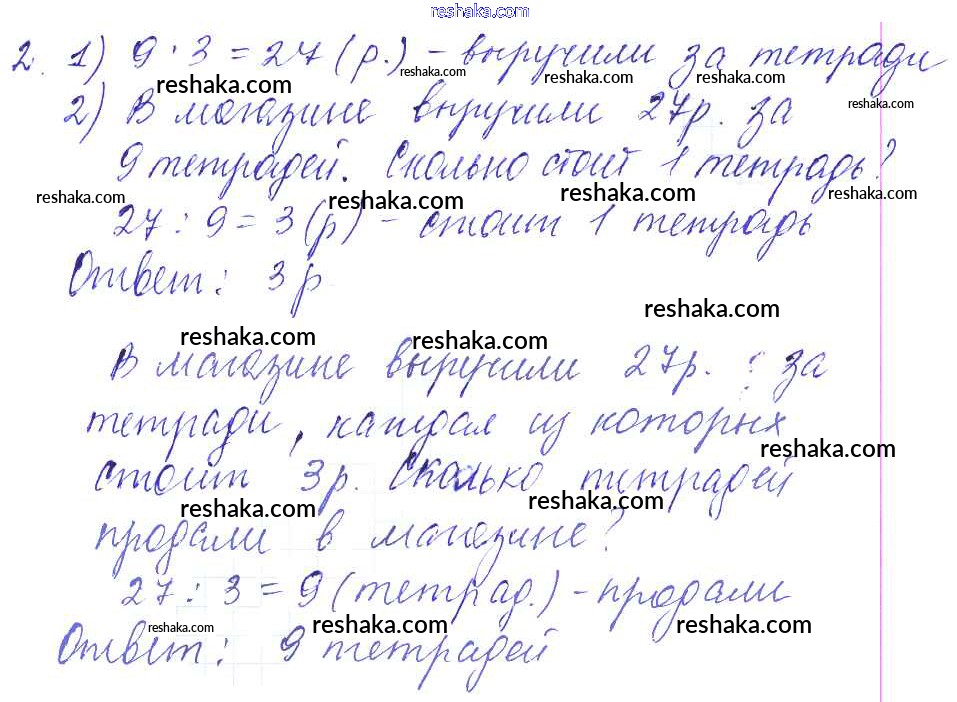 reshaka.com
2. 1) 9 · 3 = 27 (р.) - выручили за тетради
reshaka.com reshaka.com reshaka.com
2) В магазине выручили 27р. за
reshaka.com
9 тетрадей. Сколько стоит 1 тетрадь?
reshaka.com reshaka.com reshaka.com reshaka.com
27 : 9 = 3 (р) - стоит 1 тетрадь
Ответ: 3 р
reshaka.com
reshaka.com reshaka.com
В магазине выручили 27р. за
тетради, каждая из которых
reshaka.com
стоит 3р. Сколько тетрадей
reshaka.com reshaka.com
продали в магазине?
27 : 3 = 9 (тетрад.) - продали
reshaka.com reshaka.com reshaka.com
Ответ: 9 тетрадей